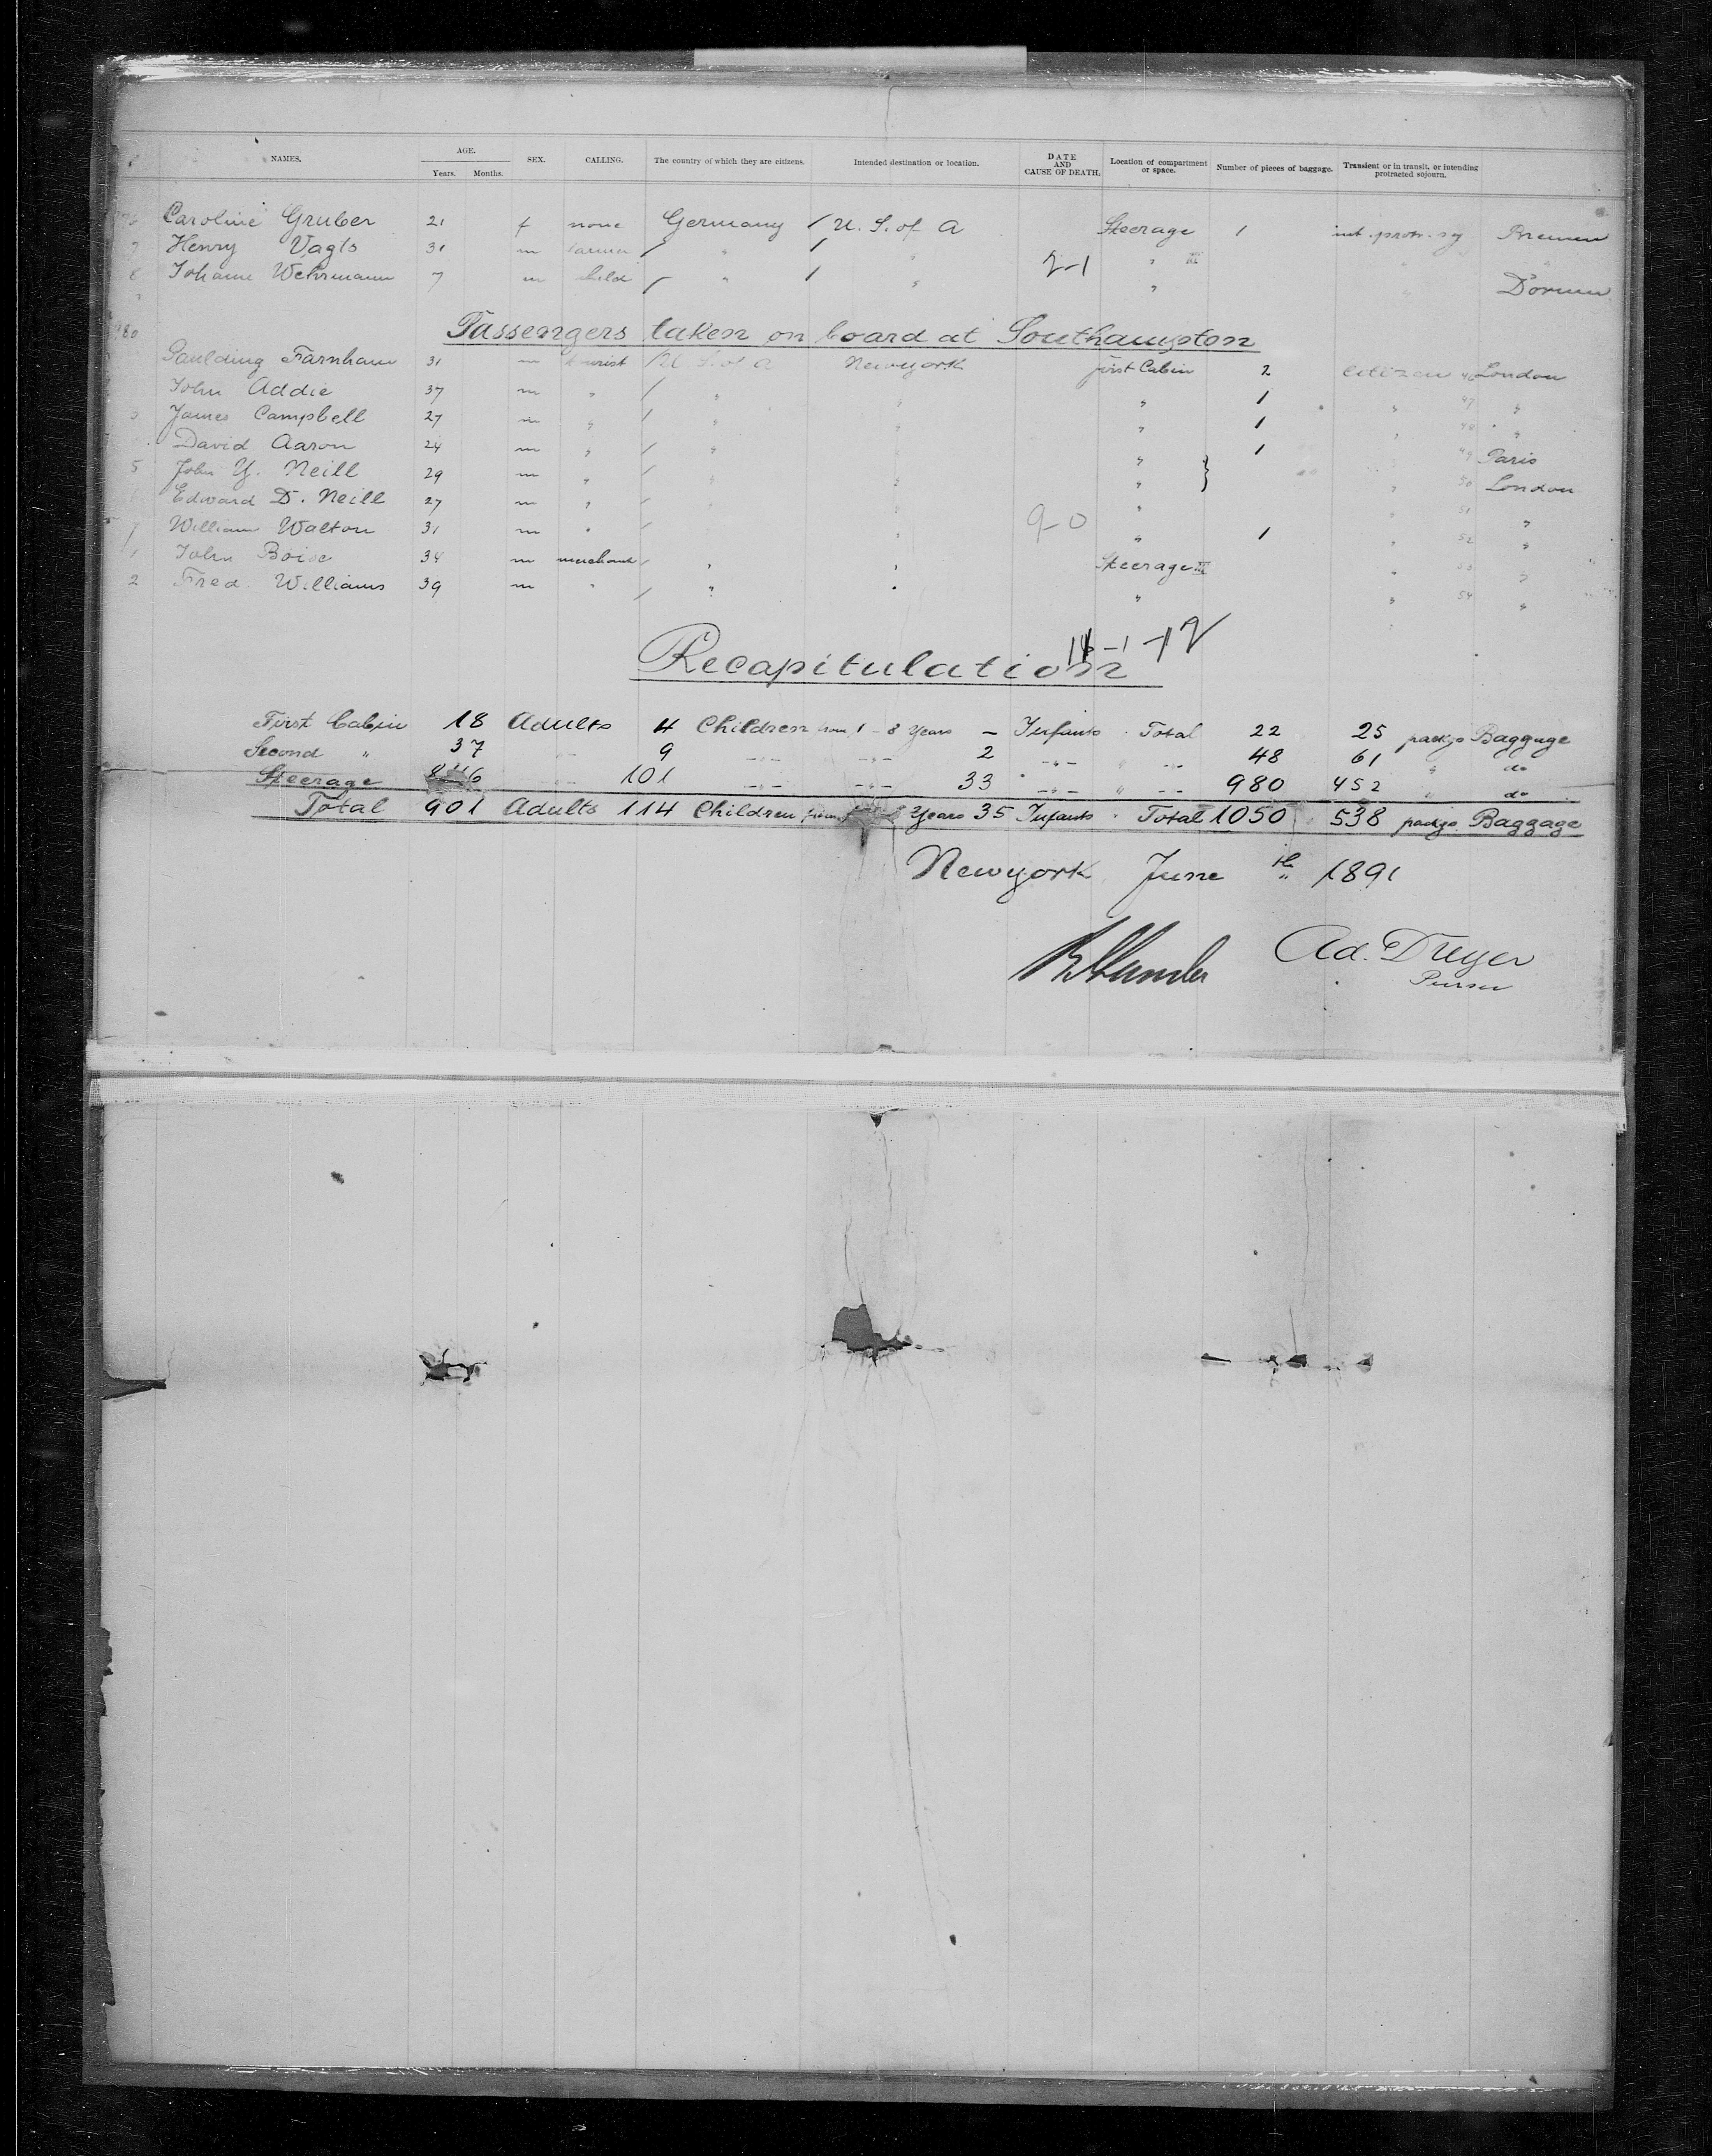 NAMES. AGE. Years. Months. SEX. CALLING. The country of which they are citizens. Intended destination or location. DATE AND CAUSE OF DEATH. Location of compartment or space. Number of pieces of baggage. Transient or in transit, or intending protracted sojourn.
Caroline Gruber 21 f none Germany / U. S. of A Steerage 1 int. protr. soj Bremen
7 Henry Vagts 31 m farmer / " / " " III
8 Johann Wehrmann 7 m child / " / " 2-1 " Dorum
980
Passengers taken on board at Southampton
Paulding Farnham 31 m tourist U. S. of A Newyork first Cabin 2 Citizen 46 London
John Addie 37 m " / " " " 1 " 47 "
3 James Campbell 27 m " / " " " 1 " 48 "
David Aaron 24 m " / " " " 1 " 49 Paris
5 John Y. Neill 29 m " / " " " } " 50 London
6 Edward D. Neill 27 m " / " " " " 51 "
7 William Walton 31 m " / " " 9-0 " 1 " 52 "
1 John Boise 34 m merchant / " " Steerage III " 53 "
2 Fred. Williams 39 m " / " " " " 54 "
Recapitulation
First Cabin 18 Adults 4 Children from 1-8 Years - Infants " Total 22 25 packgs Baggage
Second " 37 " 9 -"- -"- 2 -"- " -"- 48 61 " do
Steerage 846 -"- 101 -"- -"- 33 -"- " -"- 980 452 " do
Total 901 Adults 114 Children from Years 35 Infants " Total 1050 538 packgs Baggage
Newyork June th 1891
Ad. Dreyer
Purser